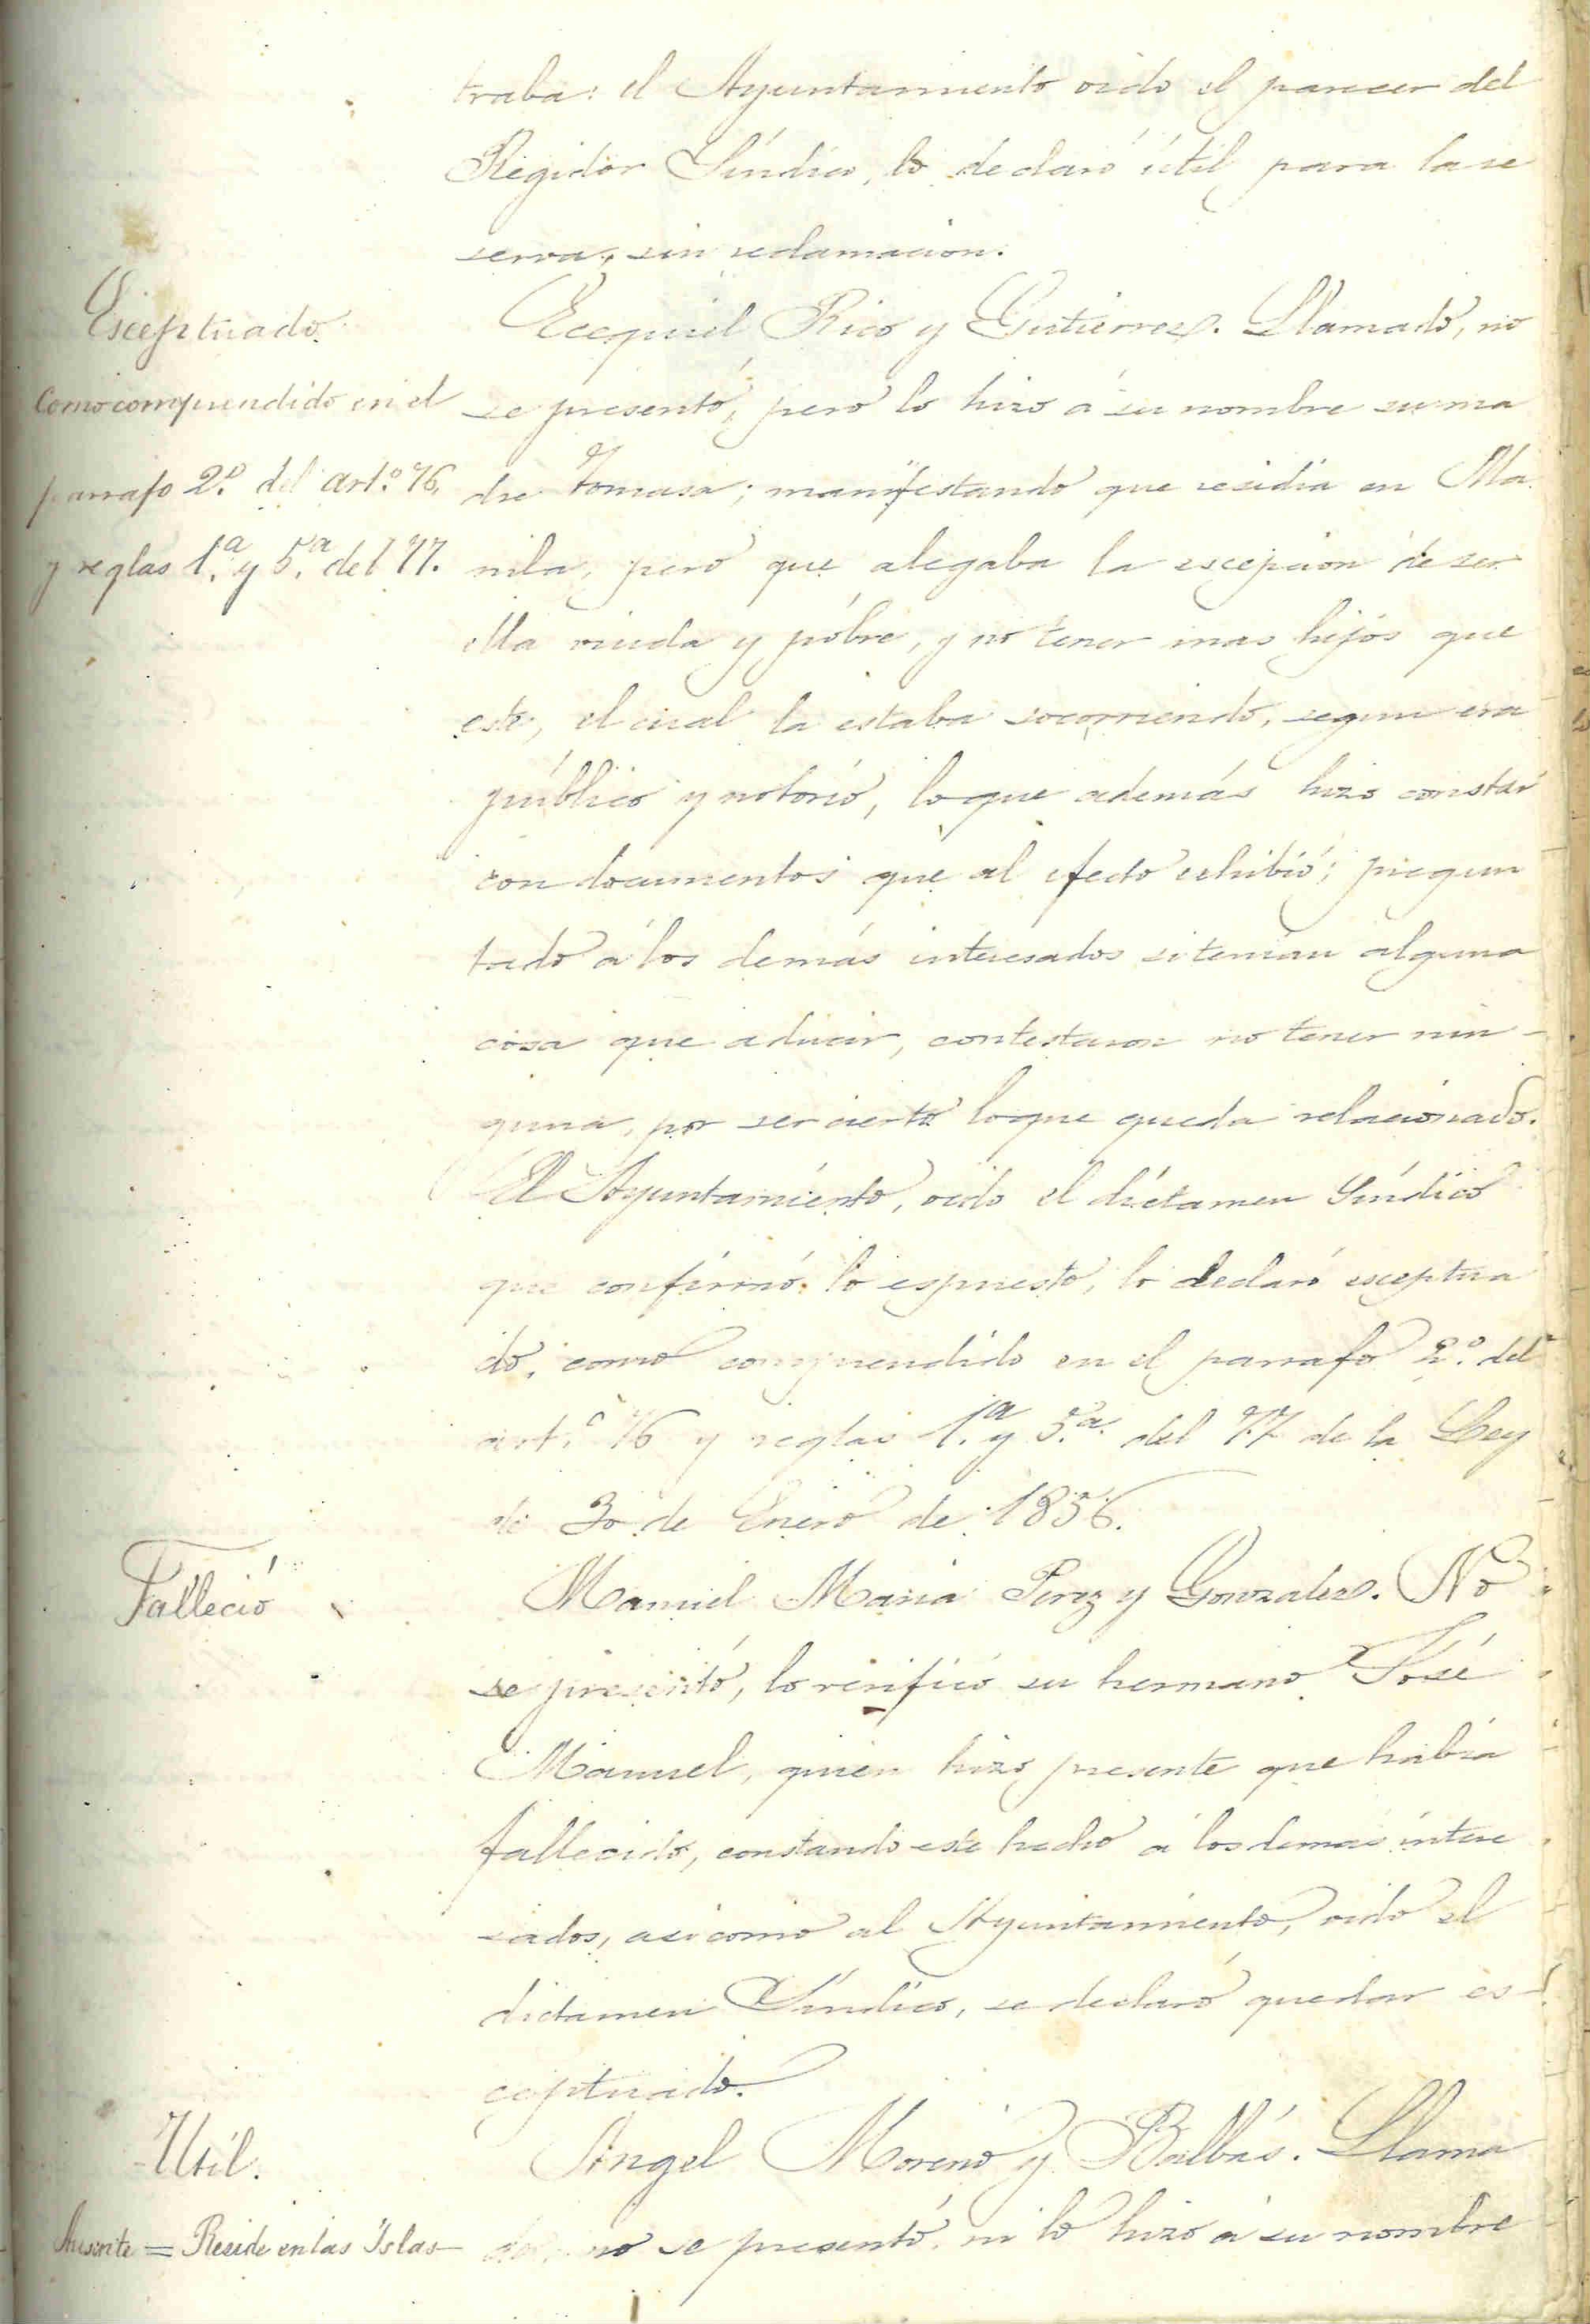 traba: el Ayuntamiento oido el parecer del
Regidor Síndico, lo declaró útil para la re
serva, sin reclamacion.
Esceptuado.
Como comprendido en el
parrafo 2.º del art.º 76.
y reglas 1.ª y 5.ª del 77.
Ecequiel Rico y Gutierrez. Llamado, no
se presentó, pero lo hizo á su nombre su ma
dre Tomasa; manifestando que residia en Ma
nila, pero que alegaba la escepcion de ser
ella viuda y pobre, y no tener mas hijos que
este, el cual la estaba socorriendo, segun era
público y notorio, lo que además hizo constar
con documentos que al efecto exhibió; pregun
tado á los demás interesados si tenian alguna
cosa que aducir, contestaron no tener nin-
guna, por ser cierto lo que queda relacionado.
El Ayuntamiento, oido el dictamen Síndico
que confirmó lo espuesto, lo declaró esceptua
do, como comprendido en el parrafo 2.º del
art.º 76 y reglas 1.ª y 5.ª del 77 de la Ley
de 30 de Enero de 1856.
Falleció
Manuel Maria Perez y Gonzalez. No
se presentó, lo verificó su hermano José
Manuel, quien hizo presente que habia
fallecido, constando este hecho á los demas intere
sados, asi como al Ayuntamiento, oido el
dictamen Síndico, se declaró quedar es-
ceptuado.
Util.
Ausente = Reside en las Islas
Angel Moreno y Balbás. Llama
do, no se presentó, ni lo hizo á su nombre